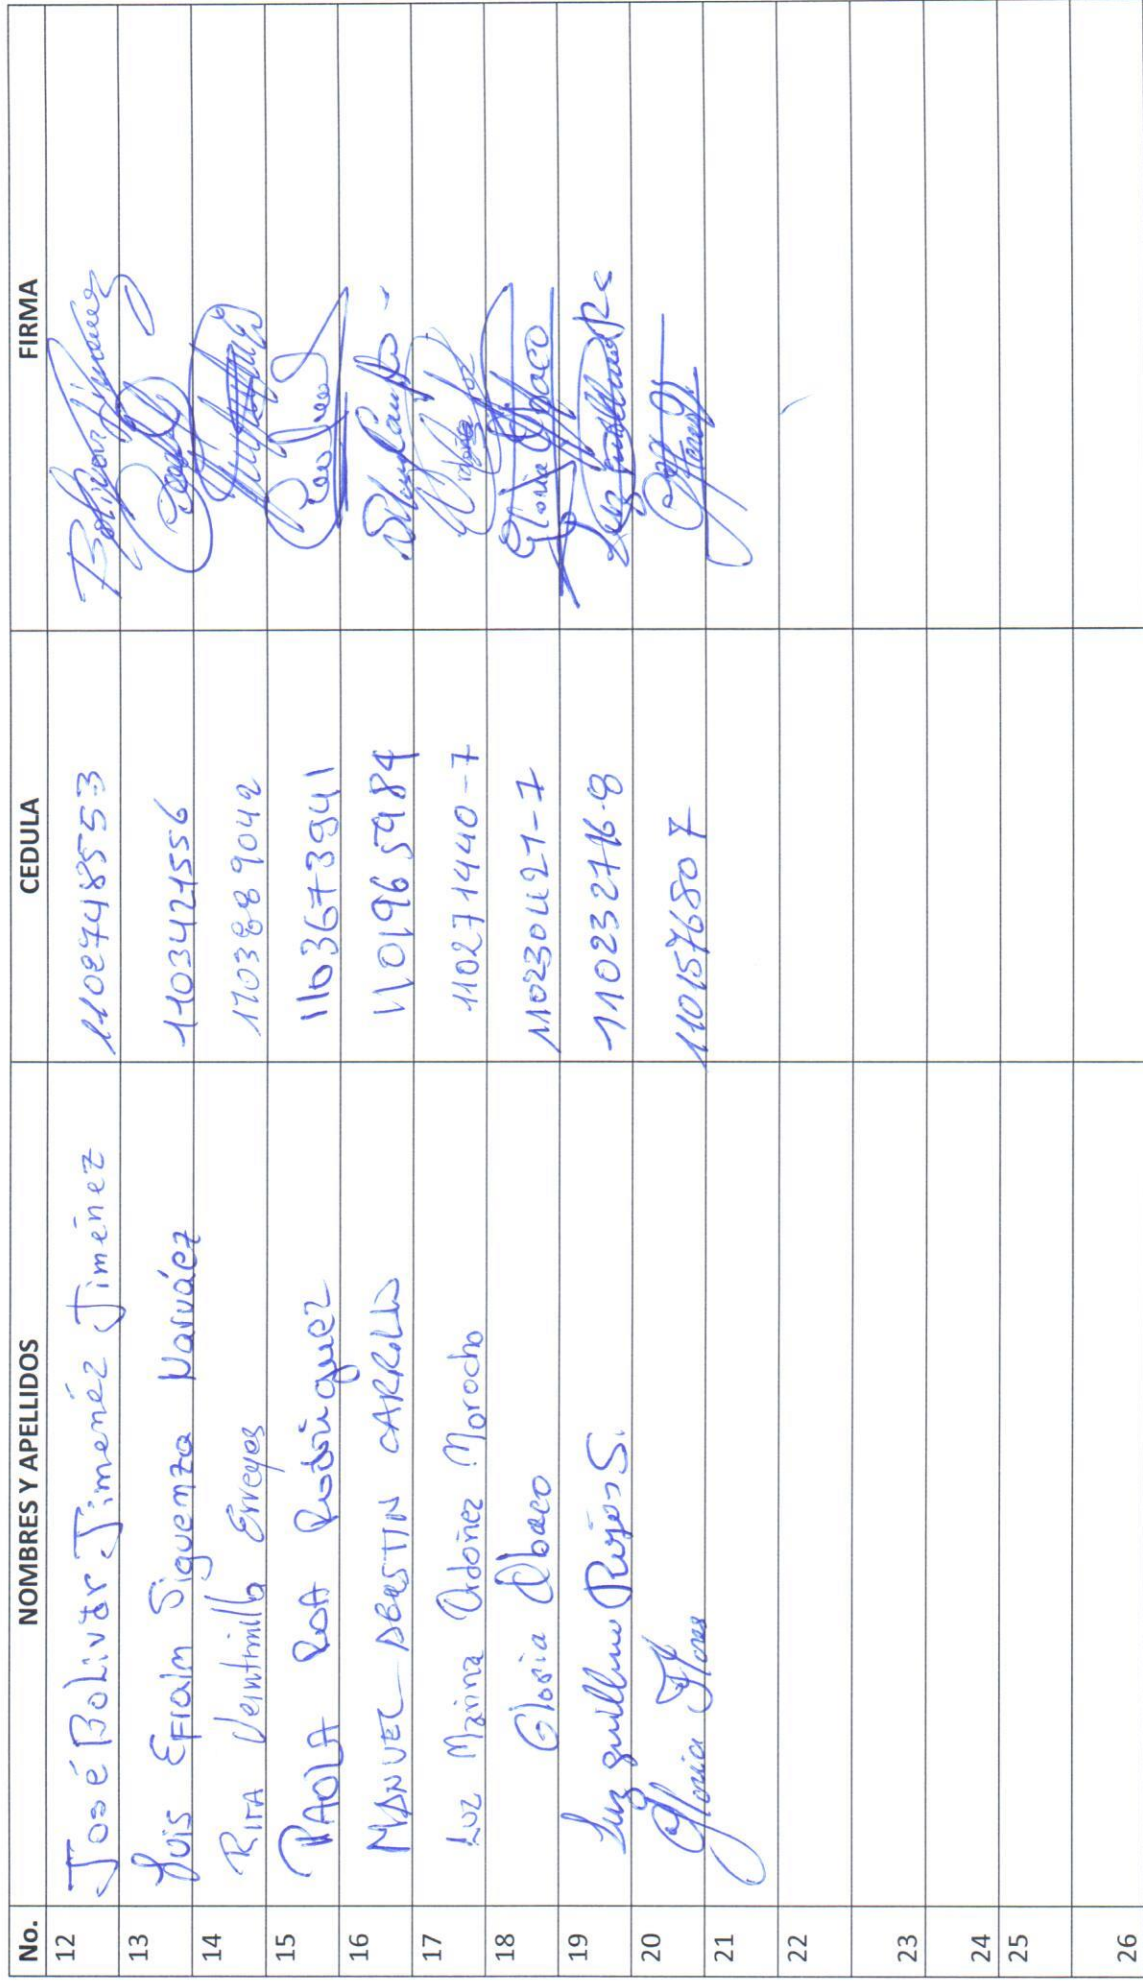 No. NOMBRES Y APELLIDOS CEDULA FIRMA
12 José Bolivar Jimenéz Jiménez 1102748553 Bolivar Jimenez
13 Luis Efraín Siguenza Narváez 1103421556
14 Rita Veintimilla Erreyes 1703889042
15 PAOLA ROA Rodríguez 1103673941
16 MANUEL CARRILLO 1101965984
17 Luz Marina Ordoñez Morocho 110271440-7
18 Gloria Abaco 110230421-7 Gloria Abaco
19 Luz guillermo Rojas S. 110232716-8
20 Gloria Flores 1101576807
21
22
23
24
25
26